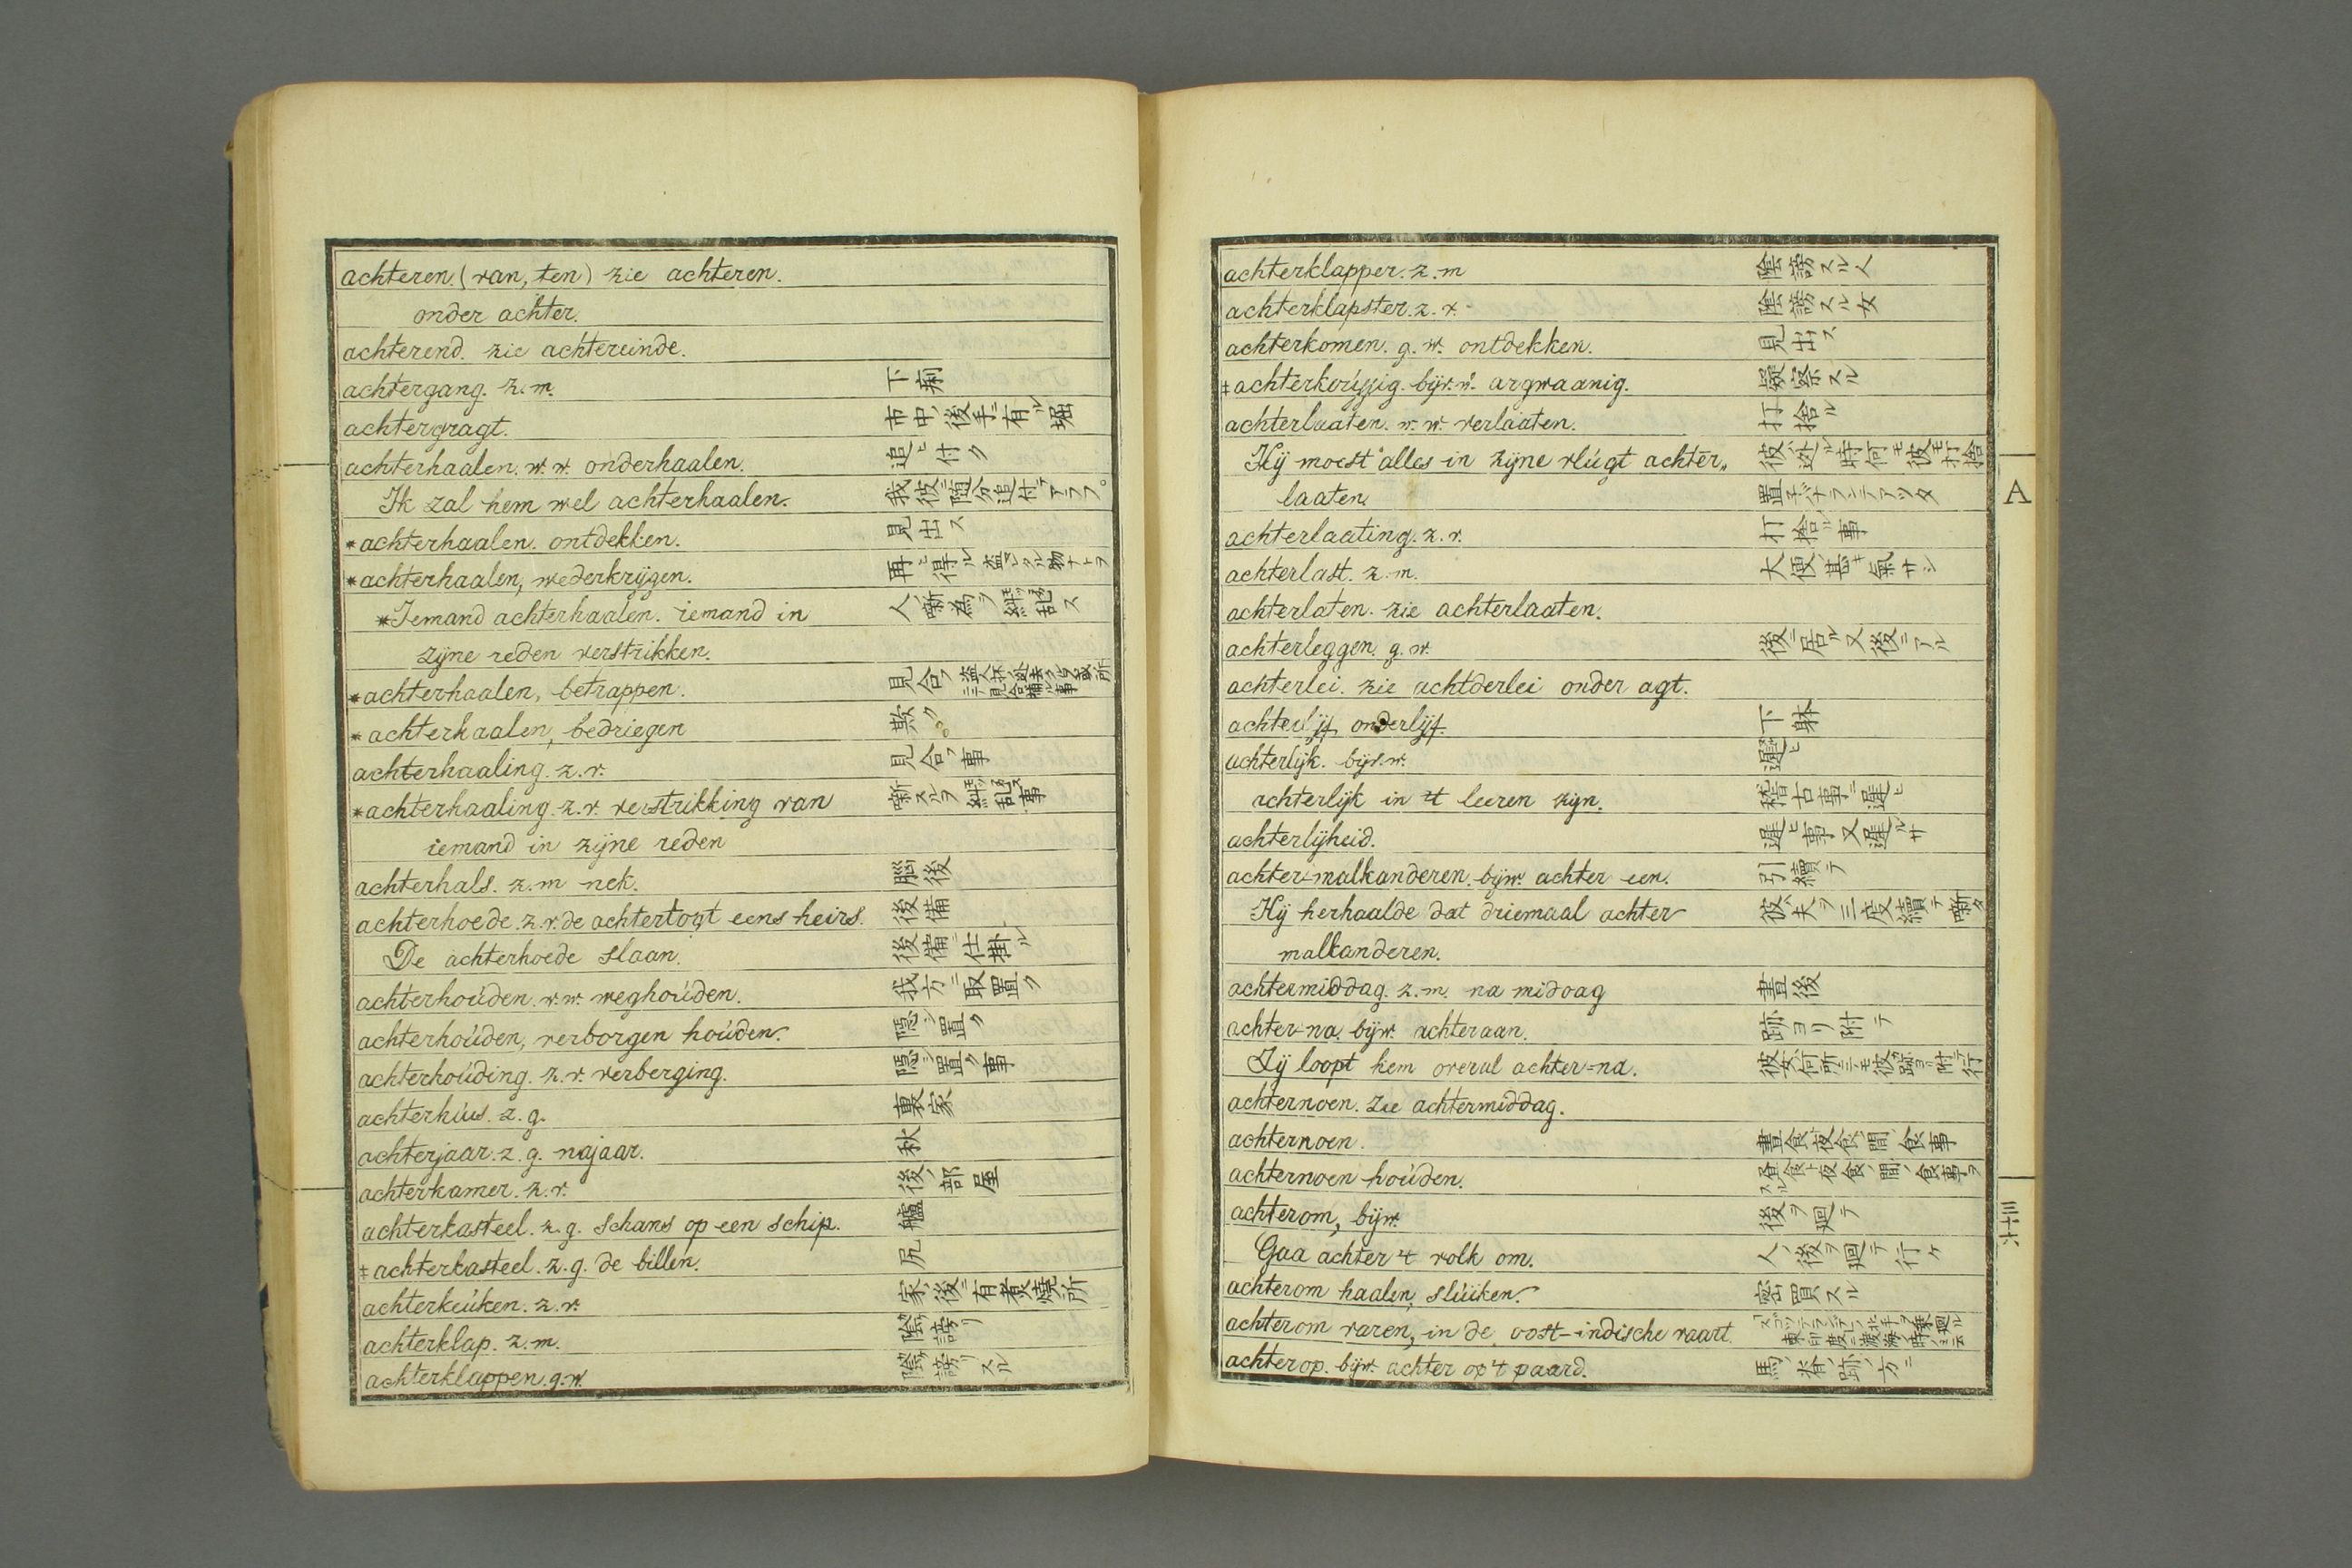 achteren. (van, ten) zie achteren.
onder achter.
achterend. zie achtereinde.
achtergang. z. m. 下痢
achtergragt. 市中ノ後手ニ有ル堀
achterhaalen. w. w. onderhaalen. 追ヒ付ク
Ik zal hem wel achterhaalen. 我彼ニ随分追付テアラフ。
*achterhaalen. ontdekken. 見出ス
*achterhaalen, wederkrijgen. 再ヒ得ル
*Iemand achterhaalen. iemand in 人ノ噺為ヲ乱ス
zijne reden verstrikken.
*achterhaalen, betrappen. 見合フ
*achterhaalen, bedriegen 欺ク
achterhaaling. z. v. 見合フ事
*achterhaaling. z. v. verstrikking van 噺スルヲ乱ス事
iemand in zijne reden
achterhals. z. m nek. 腦後
achterhoede. z. v. de achtertogt eens heirs. 後備
De achterhoede slaan. 後備ニ仕掛ル
achterhoúden. w. w. weghoúden. 我方ニ取置ク
achterhoúden, verborgen hoúden. 隠シ置ク
achterhoúding. z. v. verberging. 隠シ置ク事
achterhúis. z. g. 裏家
achterjaar. z. g. najaar. 秋
achterkamer. z. v. 後ノ部屋
achterkasteel. z. g. schans op een schip. 艫
‡achterkasteel. z. g. de billen. 尻
achterkeúken. z. v. 家ノ後ニ有煮焼所
achterklap. z. m. 陰謗リ
achterklappen. g. w. 陰謗リスル
achterklapper. z. m 陰謗スル人
achterklapster. z. v. 陰謗スル女
achterkomen. g. w. ontdekken. 見出ス
‡achterkoúsig. bijv. w. argwaanig. 疑察スル
achterlaaten. w. w. verlaaten. 打捨ル
Hij moest alles in zijne vlúgt achter„ 彼逃ル時何モ彼モ打捨
laaten. 置子バナラヌテアツタ
achterlaating. z. v. 打捨ル事
achterlast. z. m. 大便ノ甚キ氣サシ
achterlaten. zie achterlaaten.
achterleggen. g. w. 後ニ居ル又後ニアル
achterlei. zie achtderlei onder agt.
achterlijf, onderlijf. 下躰
achterlijk. bijv. w. 遅ヒ
achterlijk in 't leeren zijn. 稽古事ニ遅ヒ
achterlijheid. 遅ヒ事又遅ルサ
achter-malkanderen. bijw. achter een. 引續テ
Hij herhaalde dat driemaal achter 彼夫ヲ三度續テ噺タ
malkanderen.
achtermiddag. z. m. na middag 晝後
achter-na. bijw. achteraan. 跡ヨリ附テ
Zij loopt hem overal achter-na. 彼女何所ニモ彼ノ跡ヨリ附テ行
achternoen. zie achtermiddag.
achternoen. 晝食夜食ノ間ノ食事
achternoen hoúden. 昼食ト夜食ノ間ノ食事ヲスル
achterom, bijw. 後ヲ廻テ
Gaa achter 't volk om. 人ノ後ヲ廻テ行ケ
achterom haalen, slúiken. 密買スル
achterom varen, in de oost-indische vaart.
achterop. bijw. achter op 't paard. 馬ノ脊ノ跡ノ方ニ
A